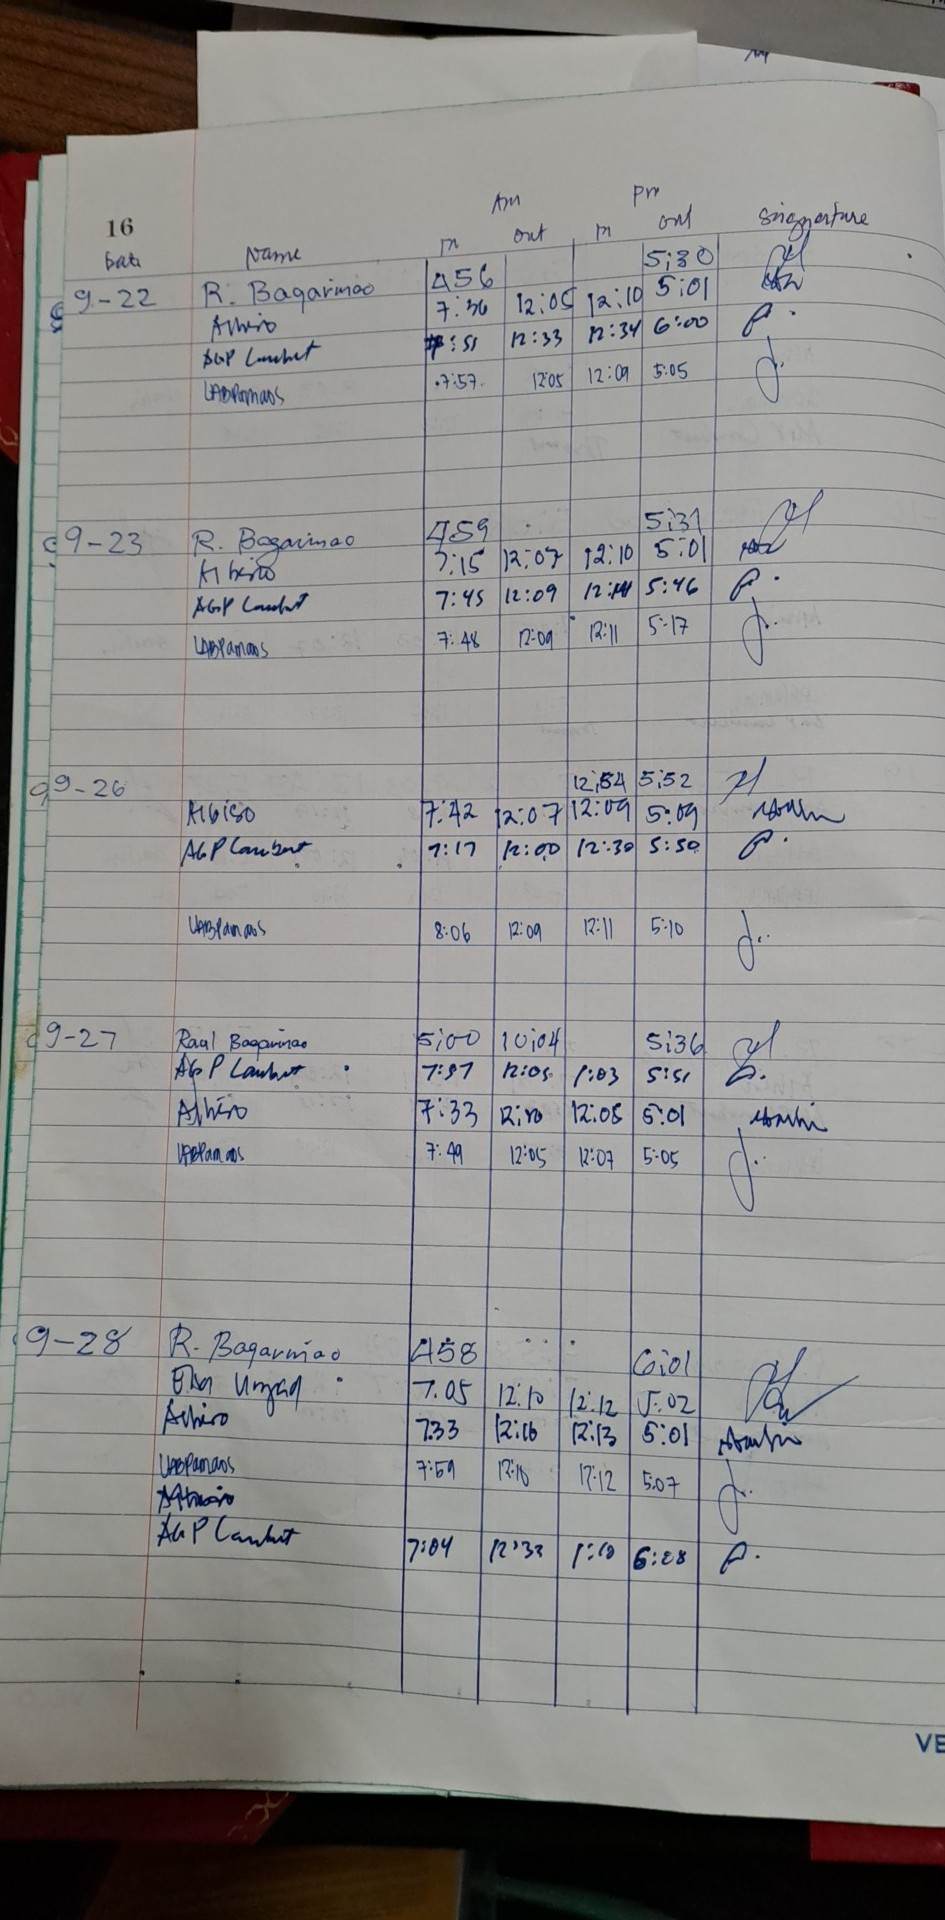 Am Pm
16 In out In out singnature
Date Name
5:30
9-22 R. Bagarinao 456
Albiro 7:36 12:05 12:10 5:01
AGP Lambert :51 12:33 12:34 6:00
UABPamaos 7:57 12:05 12:09 5:05
9-23 R. Bagarinao 459 5:31
Albiro 7:15 12:07 12:10 5:01
AGP Lambert 7:45 12:09 5:46
UABPamaos 7:48 12:09 12:11 5:17
9-26 12:54 5:52
Albiro 7:42 12:07 12:09 5:09
AGP Lambert 7:17 12:00 12:30 5:50
UABPamaos 8:06 12:09 12:11 5:10
9-27 Raul Bagarinao 5:00 10:04 5:36
AGP Lambert 12:05 1:03 5:51
Albiro 7:33 12:10 12:08 5:01
UABPamaos 7:49 12:05 12:07 5:05
9-28 R. Bagarinao 458 6:01
7:05 12:10 12:12 5:02
Albiro 7:33 12:10 12:13 5:01
UABPamaos 7:59 12:10 12:12 5:07
AGP Lambert 7:04 12:32 1:10 6:28
VE